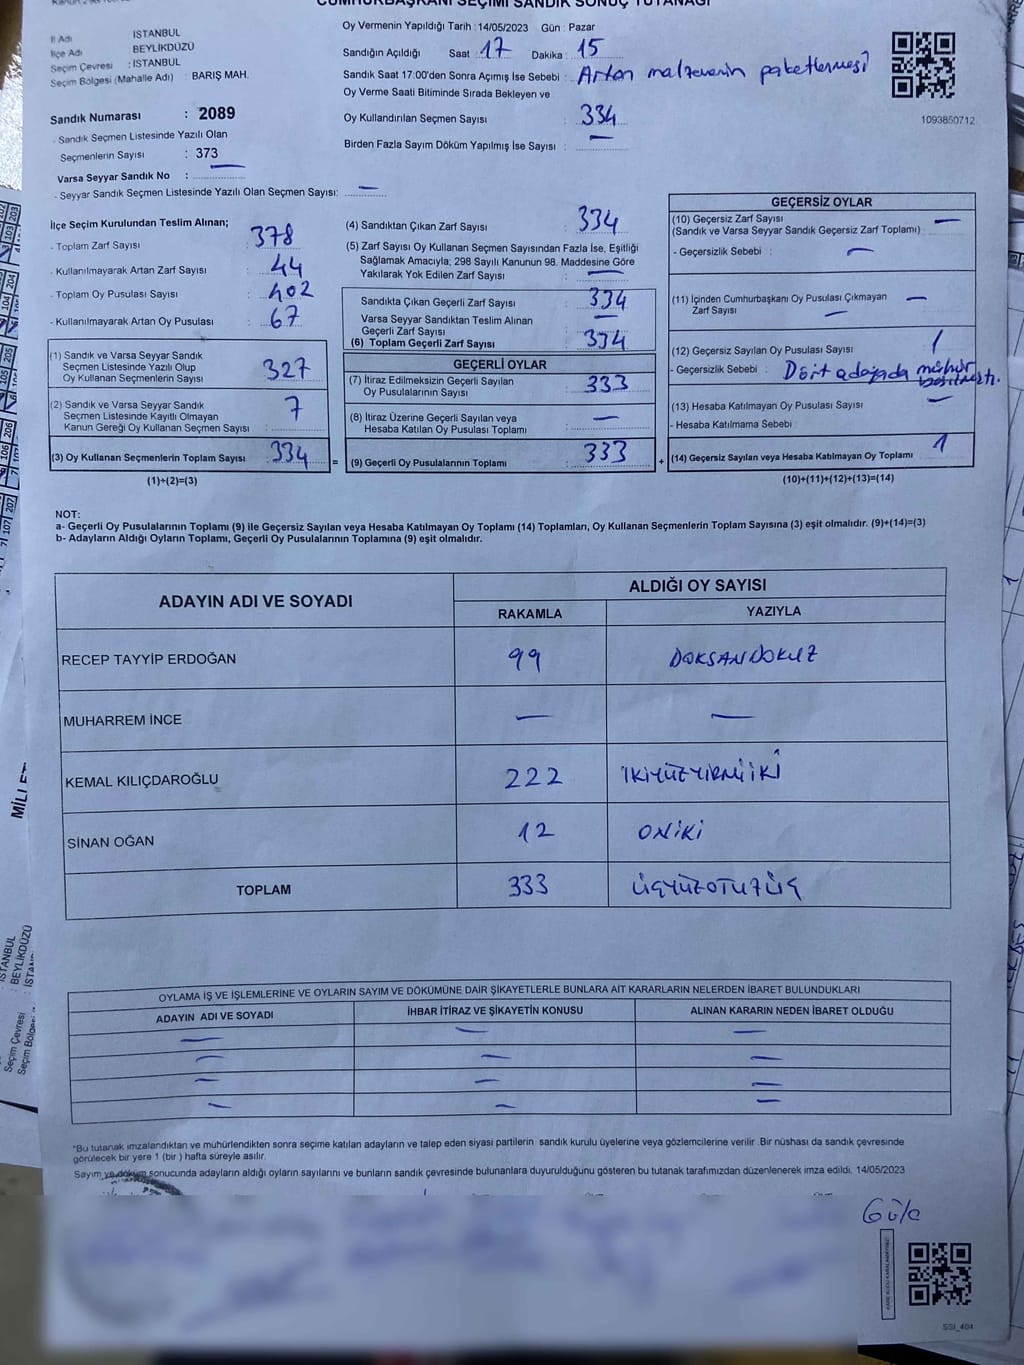 CUMHURBAŞKANI SEÇİMİ SANDIK SONUÇ TUTANAĞI
İl Adı İSTANBUL
İlçe Adı BEYLİKDÜZÜ
Seçim Çevresi : İSTANBUL
Seçim Bölgesi (Mahalle Adı) : BARIŞ MAH.
Sandık Numarası : 2089
- Sandık Seçmen Listesinde Yazılı Olan
Seçmenlerin Sayısı : 373
Varsa Seyyar Sandık No : —
- Seyyar Sandık Seçmen Listesinde Yazılı Olan Seçmen Sayısı: —
Oy Vermenin Yapıldığı Tarih : 14/05/2023 Gün : Pazar
Sandığın Açıldığı Saat 17 Dakika : 15
Sandık Saat 17:00'den Sonra Açımış İse Sebebi : Artan malzemenin paketlenmesi
Oy Verme Saati Bitiminde Sırada Bekleyen ve
Oy Kullandırılan Seçmen Sayısı : 334
Birden Fazla Sayım Döküm Yapılmış İse Sayısı : —
1093850712
İlçe Seçim Kurulundan Teslim Alınan;
- Toplam Zarf Sayısı : 378
- Kullanılmayarak Artan Zarf Sayısı : 44
- Toplam Oy Pusulası Sayısı : 402
- Kullanılmayarak Artan Oy Pusulası : 67
(1) Sandık ve Varsa Seyyar Sandık
Seçmen Listesinde Yazılı Olup
Oy Kullanan Seçmenlerin Sayısı : 327
(2) Sandık ve Varsa Seyyar Sandık
Seçmen Listesinde Kayıtlı Olmayan
Kanun Gereği Oy Kullanan Seçmen Sayısı : 7
(3) Oy Kullanan Seçmenlerin Toplam Sayısı : 334
(1)+(2)=(3)
(4) Sandıktan Çıkan Zarf Sayısı : 334
(5) Zarf Sayısı Oy Kullanan Seçmen Sayısından Fazla İse, Eşitliği
Sağlamak Amacıyla; 298 Sayılı Kanunun 98. Maddesine Göre
Yakılarak Yok Edilen Zarf Sayısı : —
Sandıkta Çıkan Geçerli Zarf Sayısı : 334
Varsa Seyyar Sandıktan Teslim Alınan
Geçerli Zarf Sayısı : —
(6) Toplam Geçerli Zarf Sayısı : 334
GEÇERLİ OYLAR
(7) İtiraz Edilmeksizin Geçerli Sayılan
Oy Pusulalarının Sayısı : 333
(8) İtiraz Üzerine Geçerli Sayılan veya
Hesaba Katılan Oy Pusulası Toplamı : —
= (9) Geçerli Oy Pusulalarının Toplamı : 333
GEÇERSİZ OYLAR
(10) Geçersiz Zarf Sayısı —
(Sandık ve Varsa Seyyar Sandık Geçersiz Zarf Toplamı) :
- Geçersizlik Sebebi : —
(11) İçinden Cumhurbaşkanı Oy Pusulası Çıkmayan —
Zarf Sayısı : —
(12) Geçersiz Sayılan Oy Pusulası Sayısı : 1
- Geçersizlik Sebebi : Dört adayada mühür
basılmıştı.
(13) Hesaba Katılmayan Oy Pusulası Sayısı : —
- Hesaba Katılmama Sebebi
+ (14) Geçersiz Sayılan veya Hesaba Katılmayan Oy Toplamı : 1
(10)+(11)+(12)+(13)=(14)
NOT:
a- Geçerli Oy Pusulalarının Toplamı (9) ile Geçersiz Sayılan veya Hesaba Katılmayan Oy Toplamı (14) Toplamları, Oy Kullanan Seçmenlerin Toplam Sayısına (3) eşit olmalıdır. (9)+(14)=(3)
b- Adayların Aldığı Oyların Toplamı, Geçerli Oy Pusulalarının Toplamına (9) eşit olmalıdır.
ADAYIN ADI VE SOYADI ALDIĞI OY SAYISI
RAKAMLA YAZIYLA
RECEP TAYYİP ERDOĞAN 99 DOKSANDOKUZ
MUHARREM İNCE — —
KEMAL KILIÇDAROĞLU 222 İKİYÜZYİRMİİKİ
SİNAN OĞAN 12 ONİKİ
TOPLAM 333 ÜÇYÜZOTUZÜÇ
OYLAMA İŞ VE İŞLEMLERİNE VE OYLARIN SAYIM VE DÖKÜMÜNE DAİR ŞİKAYETLERLE BUNLARA AİT KARARLARIN NELERDEN İBARET BULUNDUKLARI
ADAYIN ADI VE SOYADI İHBAR İTİRAZ VE ŞİKAYETİN KONUSU ALINAN KARARIN NEDEN İBARET OLDUĞU
— — —
— — —
— — —
— — —
*Bu tutanak imzalandıktan ve mühürlendikten sonra seçime katılan adayların ve talep eden siyasi partilerin sandık kurulu üyelerine veya gözlemcilerine verilir .Bir nüshası da sandık çevresinde
görülecek bir yere 1 (bir ) hafta süreyle asılır.
Sayım ve döküm sonucunda adayların aldığı oyların sayılarını ve bunların sandık çevresinde bulunanlara duyurulduğunu gösteren bu tutanak tarafımızdan düzenlenerek imza edildi. 14/05/2023
SSI_404
MİLLET
İSTANBUL
BEYLİKDÜZÜ
Seçim Çevresi